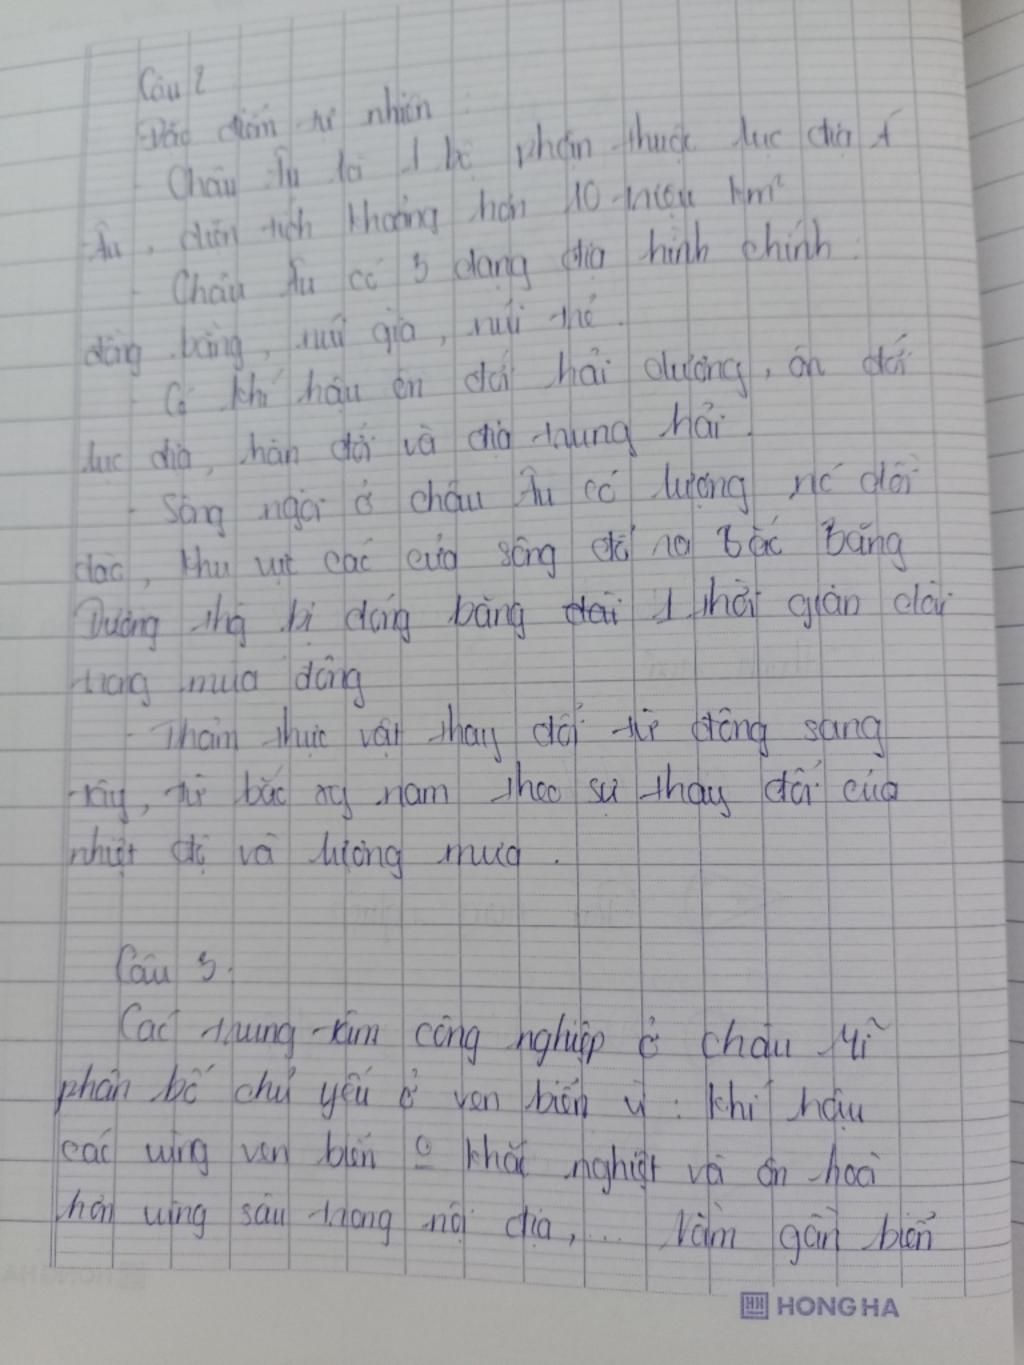 Câu 2
Đặc điểm tự nhiên :
- Châu Âu là 1 bộ phận thuộc lục địa Á
Âu, diện tích khoảng hơn 10 triệu km²
- Châu Âu có 3 dạng địa hình chính:
đồng bằng, núi già, núi trẻ.
- Có khí hậu ôn đới hải dương, ôn đới
lục địa, hàn đới và địa trung hải.
- Sông ngòi ở châu Âu có lượng nc dồi
dào, khu vực các cửa sông đổ ra Bắc Băng
Dương thg bị đóng băng dài 1 thời gian dài
trong mùa đông
- Thảm thực vật thay đổi từ đông sang
tây, từ bắc xg nam theo sự thay đổi của
nhiệt độ và lượng mưa.
Câu 3.
Các trung tâm công nghiệp ở châu Mĩ
phân bố chủ yếu ở ven biển vì : khí hậu
các vùng ven biển o khắc nghiệt và ôn hoà
hơn vùng sâu trong nội địa, ... nằm gần biển
HONG HA